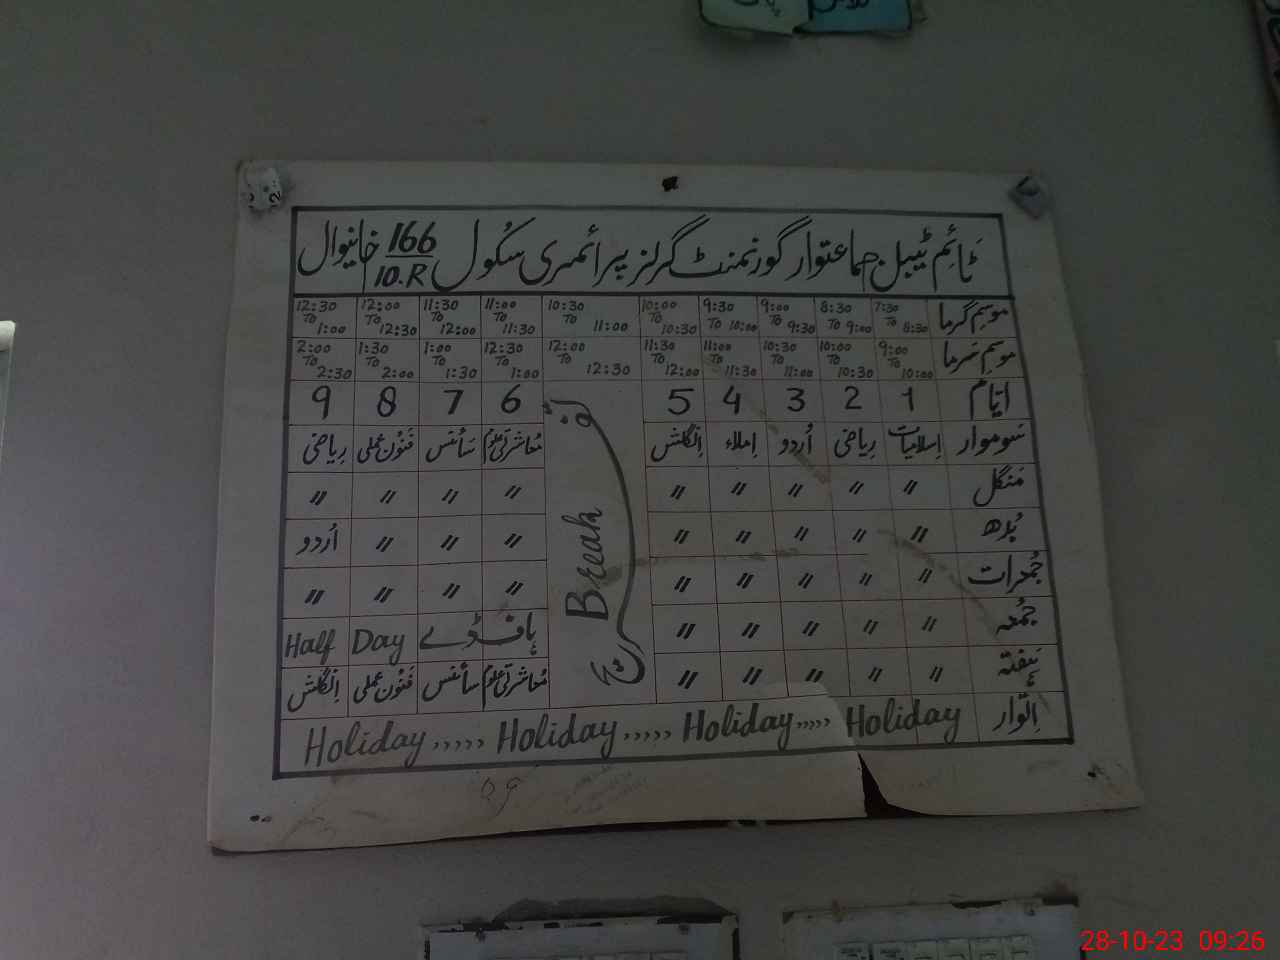 ٹائم ٹیبل جماعتوار گورنمنٹ گرلز پرائمری سکول 166/10.R خانیوال
موسم گرما 7:30 To 8:30 8:30 To 9:00 9:00 To 9:30 9:30 To 10:00 10:00 To 10:30 10:30 To 11:00 11:00 To 11:30 11:30 To 12:00 12:00 To 12:30 12:30 To 1:00
موسم سرما 9:00 To 10:00 10:00 To 10:30 10:30 To 11:00 11:00 To 11:30 11:30 To 12:00 12:00 To 12:30 12:30 To 1:00 1:00 To 1:30 1:30 To 2:00 2:00 To 2:30
ایّام 1 2 3 4 5 6 7 8 9
سوموار اِسلامیات ریاضی اُردو اِملاء انگلش معاشرتی علوم سائنس فنون عملی ریاضی
منگل " " " " " " " " "
بُدھ " " " " " " " " اُردو
تفریح Break
جُمعرات " " " " " " " " "
جُمعہ " " " " " ہاف ڈے Half Day
ہفتہ " " " " " معاشرتی علوم سائنس فنون عملی انگلش
اِتوار Holiday ,,,,, Holiday ,,,,, Holiday ,,,,, Holiday
28-10-23 09:26